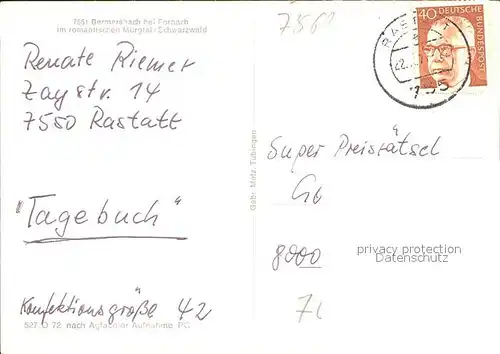 7561 Bermersbach bei Forbach
im romantischen Murgtal/Schwarzwald
Renate Riemer
Zaystr. 14
7550 Rastatt
"Tagebuch"
Konfektionsgröße 42
527 D 72 nach Agfacolor Aufnahme PC
Gebr. Metz, Tübingen
7568
RAS
22.
755
40 DEUTSCHE
BUNDESPOST
Super Preisrätsel
8000
privacy protection
Datenschutz